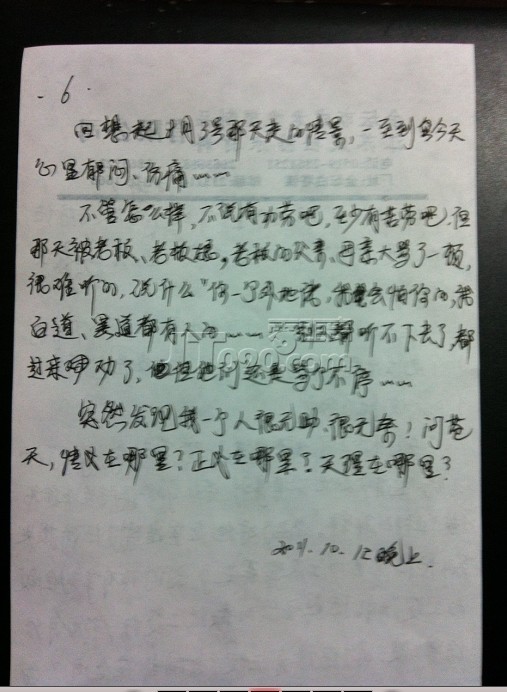 ·6·
回想起十月3号那天走的情景，一直到今天
心里郁闷、伤痛……
不管怎么样，不说有功劳吧，至少有苦劳吧，但
那天被老板、老板娘，老板的父亲、母亲大骂了一顿，
很难听的，说什么"你一个外地佬，我还会怕你的，我
白道、黑道都有人的……别人都听不下去了，都
过来劝了，但他们还是骂个不停……
突然发现我一个人很无助、很无奈！问苍
天，情义在哪里？正义在哪里？天理在哪里？
10.12晚上.